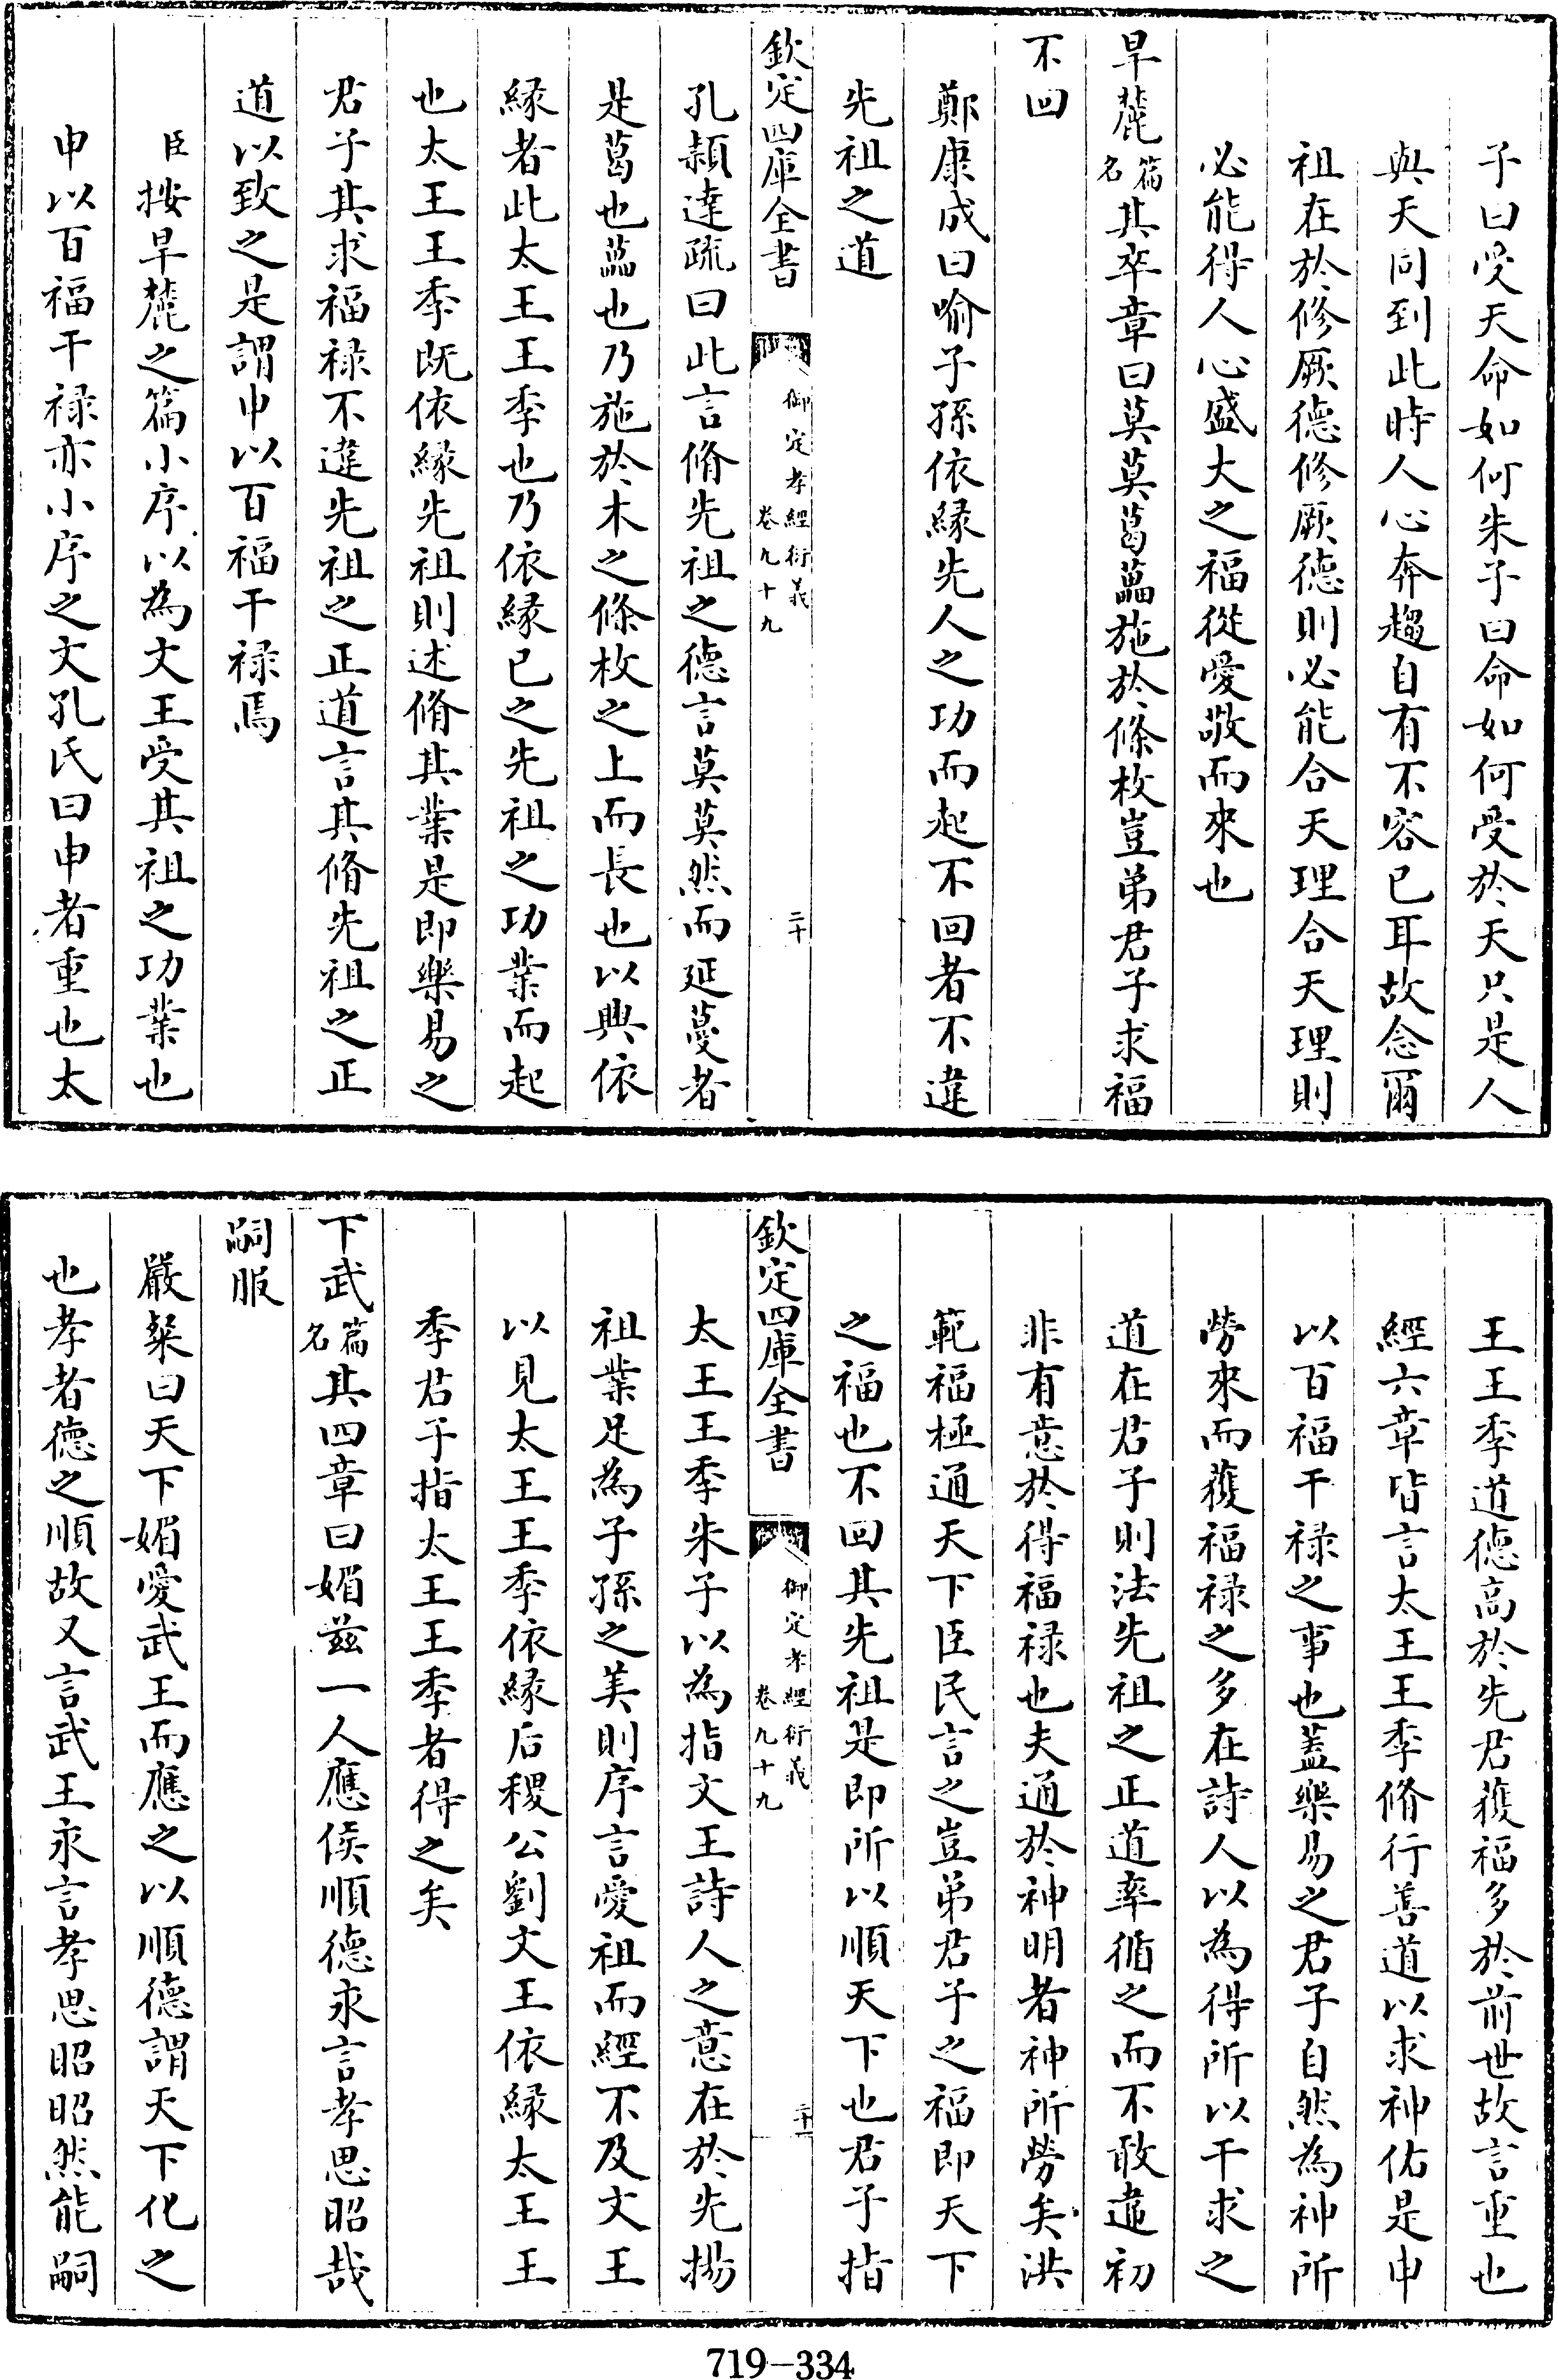 子曰受天命如何朱子曰命如何受於天只是人
與天同到此時人心奔趨自有不容已耳故念爾
祖在於修厥德修厥德則必能合天理合天理則
必能得人心盛大之福從愛敬而來也
旱麓篇名其卒章曰莫莫葛藟施於條枚豈弟君子求福
不回
鄭康成曰喻子孫依縁先人之功而起不回者不違
先祖之道
欽定四庫全書
御定孝經衍義
卷九十九
二十
孔穎達疏曰此言脩先祖之德言莫莫然而延蔓者
是葛也藟也乃施於木之條枚之上而長也以興依
縁者此太王王季也乃依縁已之先祖之功業而起
也太王王季既依縁先祖則述脩其業是即樂易之
君子其求福禄不違先祖之正道言其脩先祖之正
道以致之是謂申以百福干禄焉
臣按旱麓之篇小序以為文王受其祖之功業也
申以百福干禄亦小序之文孔氏曰申者重也太
王王季道德高於先君獲福多於前世故言重也
經六章皆言太王王季脩行善道以求神佑是申
以百福干禄之事也蓋樂易之君子自然為神所
勞來而獲福禄之多在詩人以為得所以干求之
道在君子則法先祖之正道率循之而不敢違初
非有意於得福禄也夫通於神明者神所勞矣洪
範福極通天下臣民言之豈弟君子之福即天下
之福也不回其先祖是即所以順天下也君子指
欽定四庫全書
御定孝經衍義
卷九十九
二十一
太王王季朱子以為指文王詩人之意在於先揚
祖業足為子孫之美則序言愛祖而經不及文王
以見太王王季依縁后稷公劉文王依縁太王王
季君子指太王王季者得之矣
下武篇名其四章曰媚兹一人應侯順德永言孝思昭哉
嗣服
嚴粲曰天下媚愛武王而應之以順德謂天下化之
也孝者德之順故又言武王永言孝思昭昭然能嗣
719-334